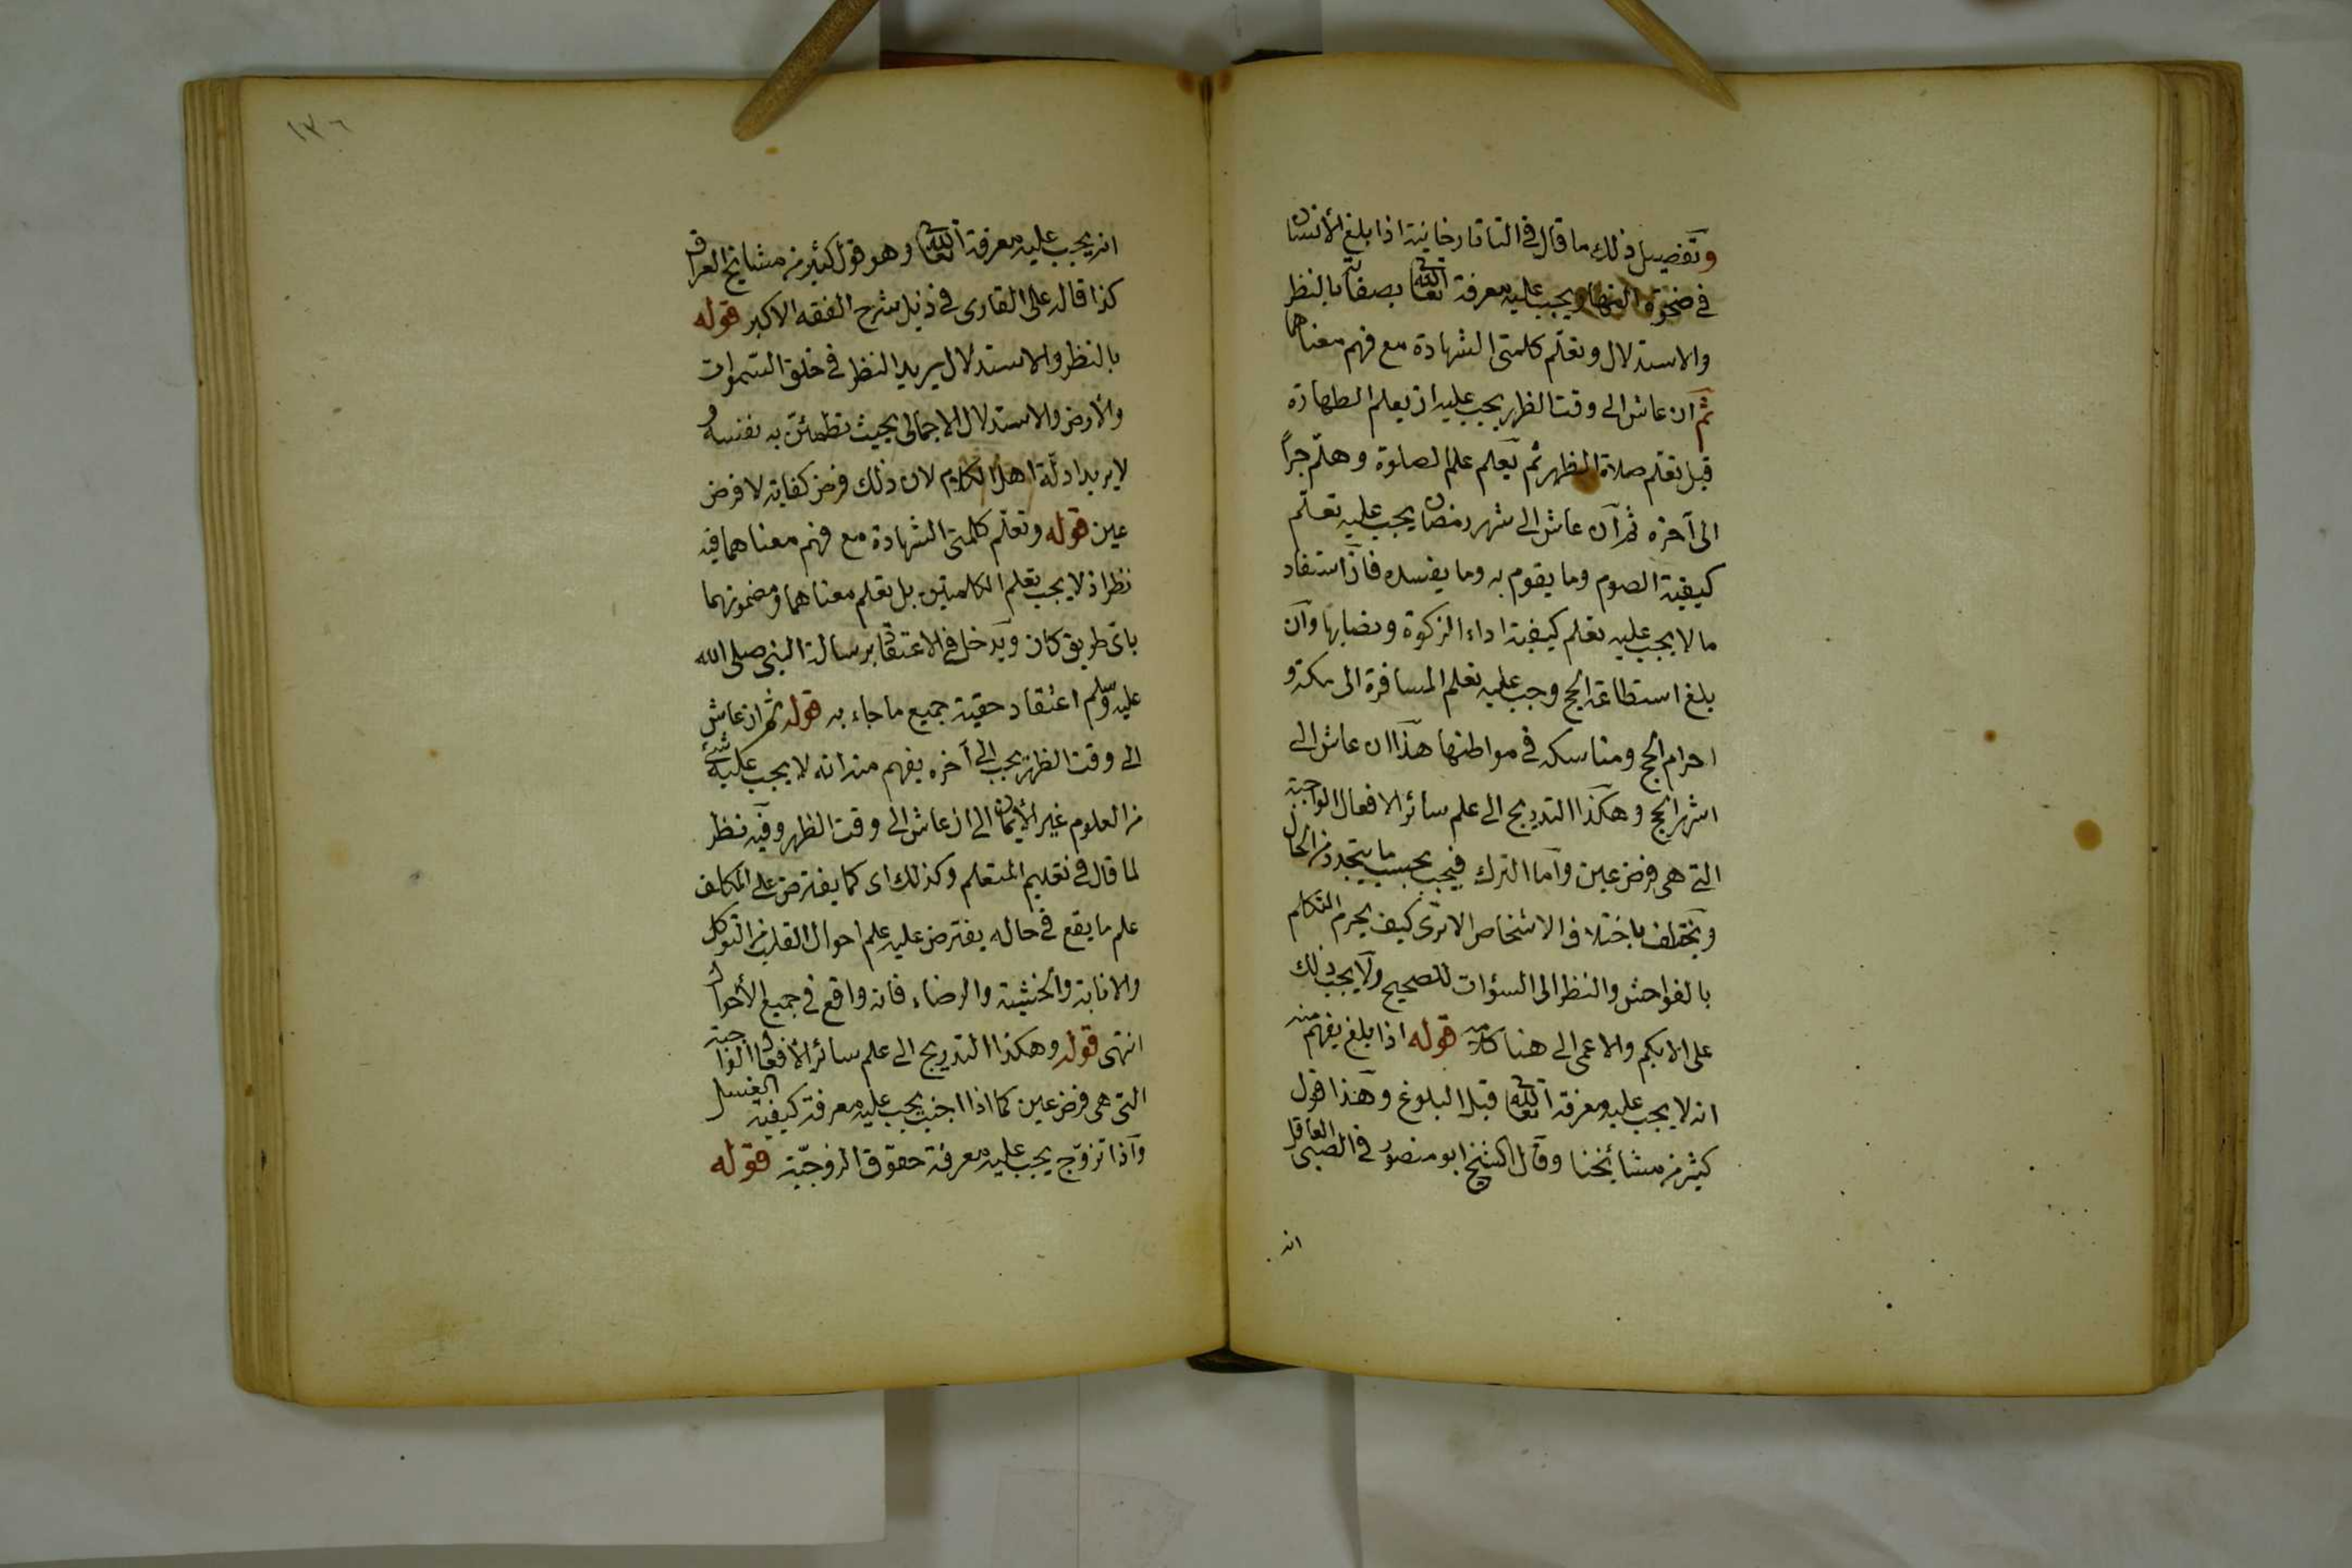 وتفضيل ذلك ما قال في التاتارخانية اذا بلغ الأنسان
في ضحوة النهار ويجب عليه معرفة الله تعالى بصفاته بالنظر
والاستدلال وتعلّم كلمتى الشهادة مع فهم معناهما
ثم ان عاش الى وقت الظهر يجب عليه ان يعلم الطهارة
قبل تعلّم صلاة الظهر ثم يعلم علم الصلوة وهلّم جراً
الى آخره ثم ان عاش الى شهر رمضان يجب عليه تعلّم
كيفية الصوم وما يقوم به وما يفسده فاذا استفاد
ما لا يجب عليه تعلم كيفية اداء الزكوة ونصابها وان
بلغ استطاعة الحج وجب عليه تعلم المسافرة الى مكة و
احرام الحج ومناسكه في مواطنها هذا ان عاش الى
اشهر الحج وهكذا التدريج الى علم سائر الافعال الواجبة
التى هى فرض عين واما الترك فيجب بحسب ما يتجدد من الحال
ويختلف باختلاف الاشخاص الا ترى كيف يحرم التكلم
بالفواحش والنظر الى السؤات للصحيح ولا يجب ذلك
على الابكم والاعمى الى هنا كلامه قوله اذا بلغ يفهم منه
انه لا يجب عليه معرفة الله تعالى قبل البلوغ وهذا قول
كثير من مشائخنا وقال الشيخ ابو منصور في الصبى العاقل
انه
١٣٦
انه يجب عليه معرفة الله تعالى وهو قول كثير من مشايخ العراق
كذا قال على القارى في ذيل شرح الفقه الاكبر قوله
بالنظر والاستدلال يريد النظر في خلق السموات
والأرض والاستدلال الاجمالى بحيث تطمئن به نفسه و
لا يريد ادلّة اهل الكلام لان ذلك فرض كفاية لا فرض
عين قوله وتعلّم كلمتى الشهادة مع فهم معناهما فيه
نظر اذ لا يجب تعلم الكلمتين بل تعلم معناهما ومضمونهما
باى طريق كان ويدخل في الاعتقاد برسالة النبى صلى الله
عليه وسلم اعتقاد حقية جميع ما جاء به قوله ثم ان عاش
الى وقت الظهر يجب الى آخره يفهم منه انه لا يجب عليه شئ
من العلوم غير الأيمان الى ان عاش الى وقت الظهر وفيه نظر
لما قال في تعليم المتعلم وكذلك اى كما يفترض على المكلف
علم ما يقع في حاله يفترض عليه علم احوال القلب من التوكل
والانابة والخشية والرضاء فانه واقع في جميع الأحوال
انتهى قوله وهكذا التدريج الى علم سائر الأفعال الواجبة
التى هى فرض عين كما اذا اجنب يجب عليه معرفة كيفية الغسل
واذا تزوّج يجب عليه معرفة حقوق الزوجيّة قوله